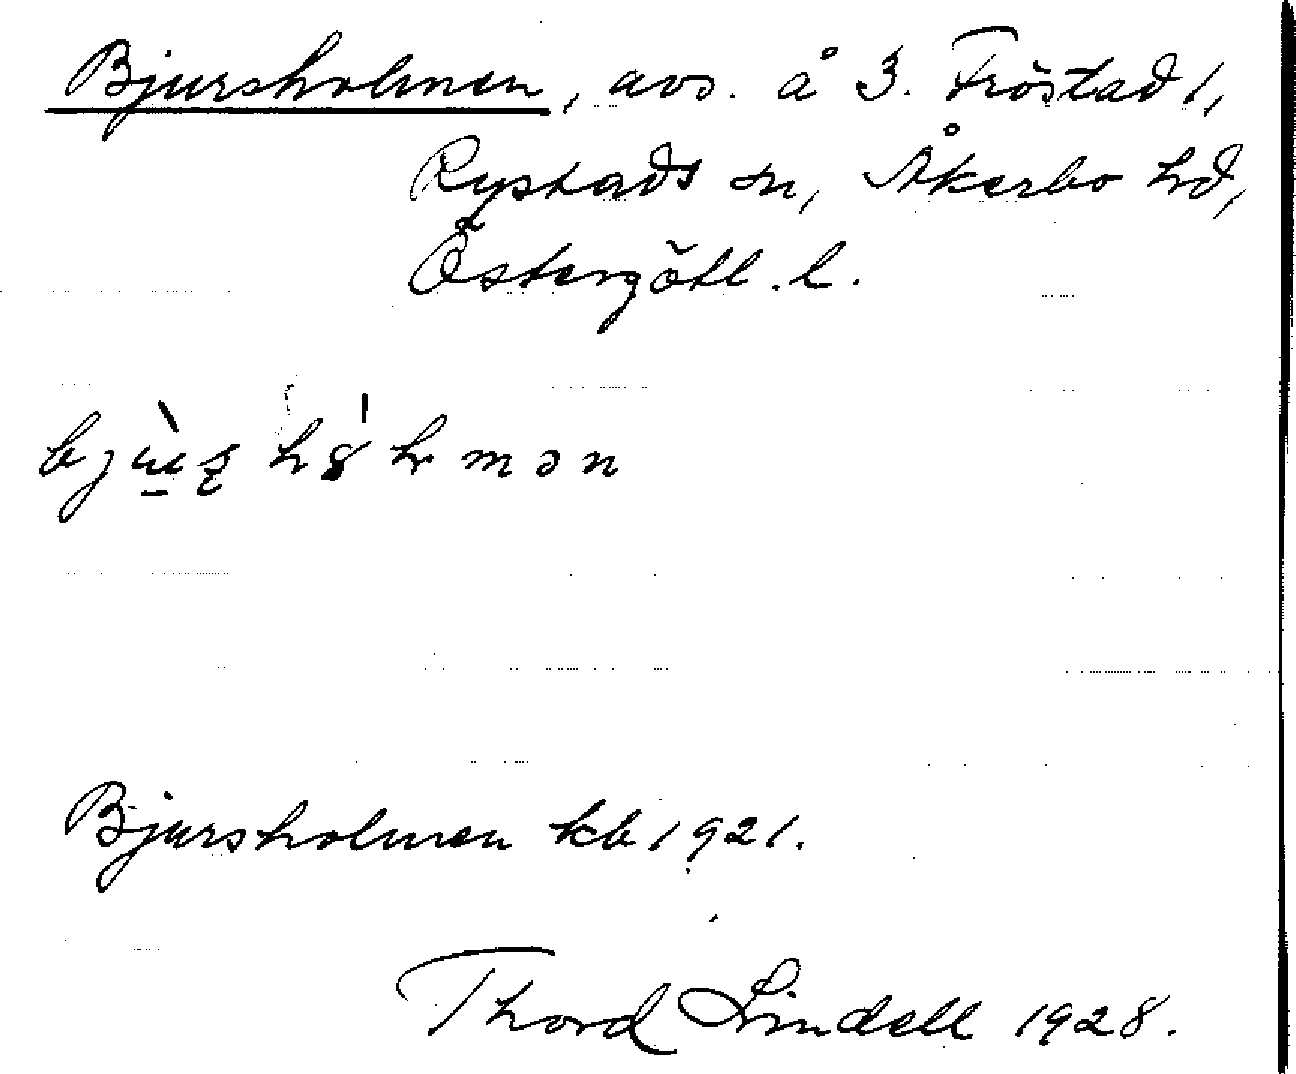 Bjursholmen, avs. å 3. Fröstad 1,
Rystads sn, Åkerbo hd,
Östergötl. l.
Bjursholmen kb 1921.
Thord Lindell 1928.